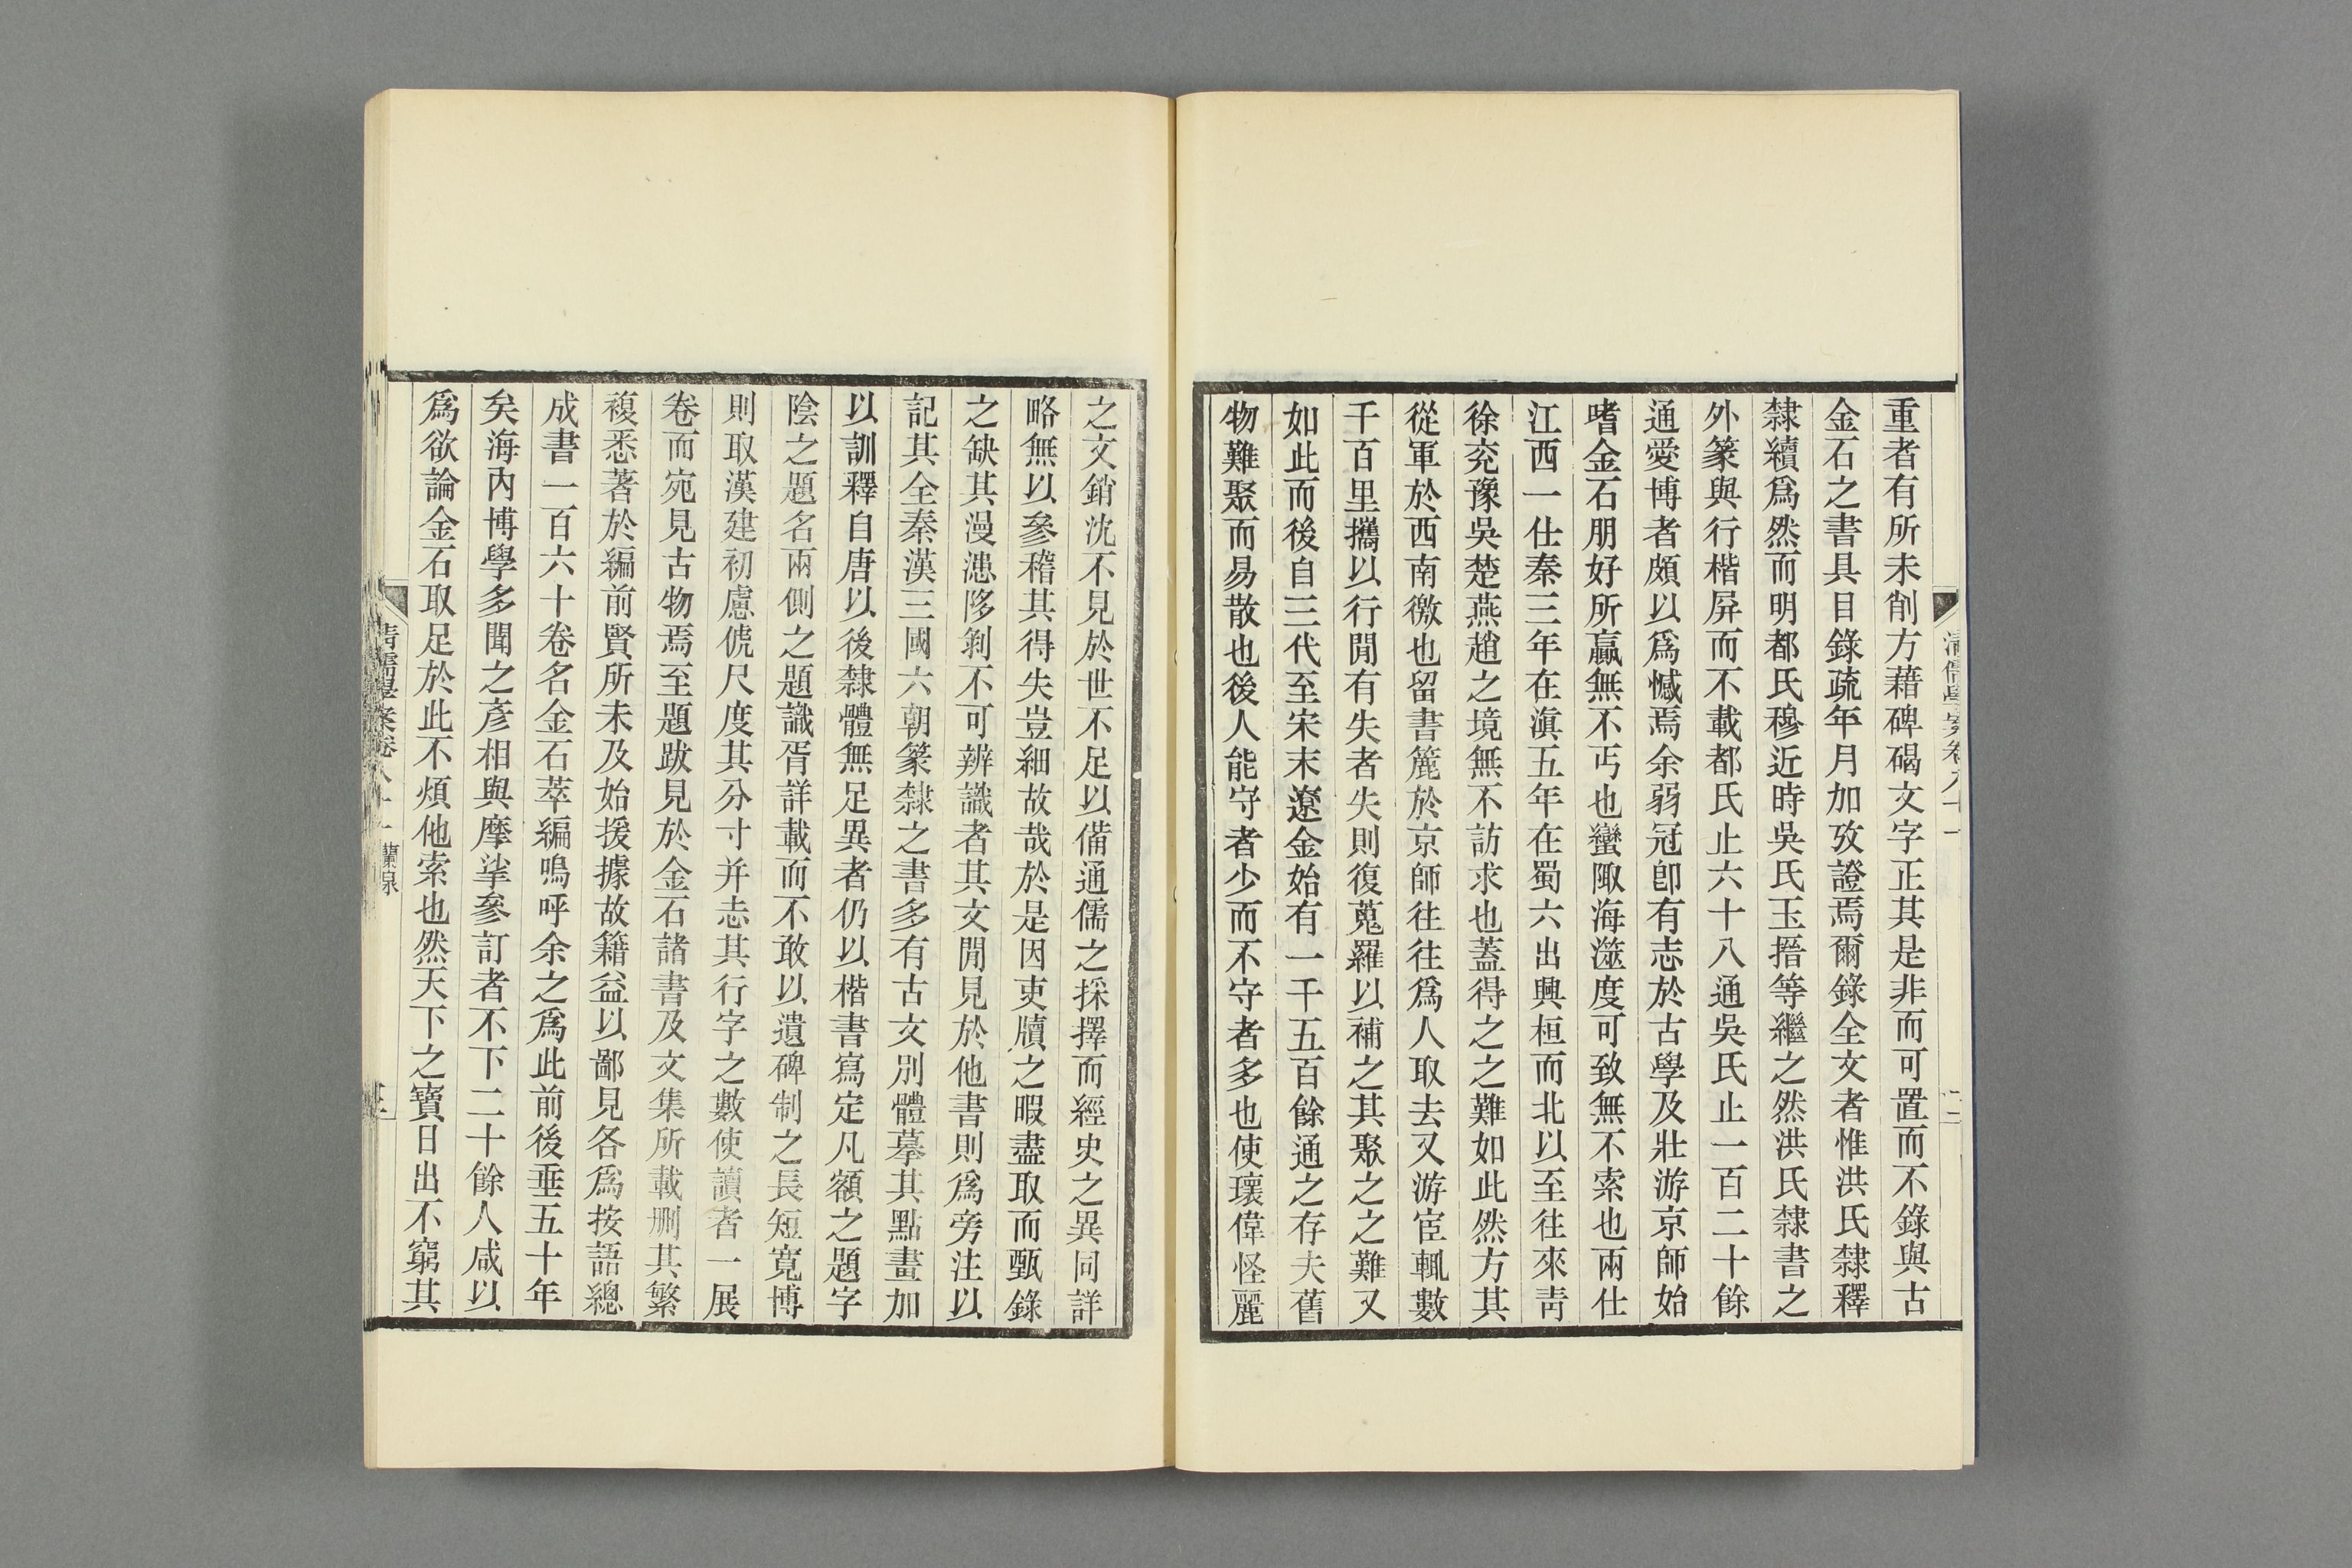 重者有所未削方藉碑碣文字正其是非而可置而不錄與古
金石之書具目錄疏年月加攷證焉爾錄全文者惟洪氏隸釋
隸續爲然而明都氏穆近時吳氏玉搢等繼之然洪氏隸書之
外篆與行楷屏而不載都氏止六十八通吳氏止一百二十餘
通愛博者頗以爲憾焉余弱冠卽有志於古學及壯游京師始
嗜金石朋好所贏無不丐也蠻陬海澨度可致無不索也兩仕
江西一仕秦三年在滇五年在蜀六出興桓而北以至往來靑
徐兖豫吳楚燕趙之境無不訪求也蓋得之之難如此然方其
從軍於西南徼也留書簏於京師往往爲人取去又游宦輒數
千百里攜以行閒有失者失則復蒐羅以補之其聚之之難又
如此而後自三代至宋末遼金始有一千五百餘通之存夫舊
物難聚而易散也後人能守者少而不守者多也使瓌偉怪麗
之文銷沈不見於世不足以備通儒之採擇而經史之異同詳
略無以參稽其得失豈細故哉於是因吏牘之暇盡取而甄錄
之缺其漫漶陊剝不可辨識者其文閒見於他書則爲旁注以
記其全秦漢三國六朝篆隸之書多有古文別體摹其點畫加
以訓釋自唐以後隸體無足異者仍以楷書寫定凡額之題字
陰之題名兩側之題識胥詳載而不敢以遺碑制之長短寬博
則取漢建初慮俿尺度其分寸并志其行字之數使讀者一展
卷而宛見古物焉至題跋見於金石諸書及文集所載刪其繁
複悉著於編前賢所未及始援據故籍益以鄙見各爲按語總
成書一百六十卷名金石萃編嗚呼余之爲此前後垂五十年
矣海內博學多聞之彥相與摩挲參訂者不下二十餘人咸以
爲欲論金石取足於此不煩他索也然天下之寶日出不窮其
清儒學案卷八十一 蘭泉